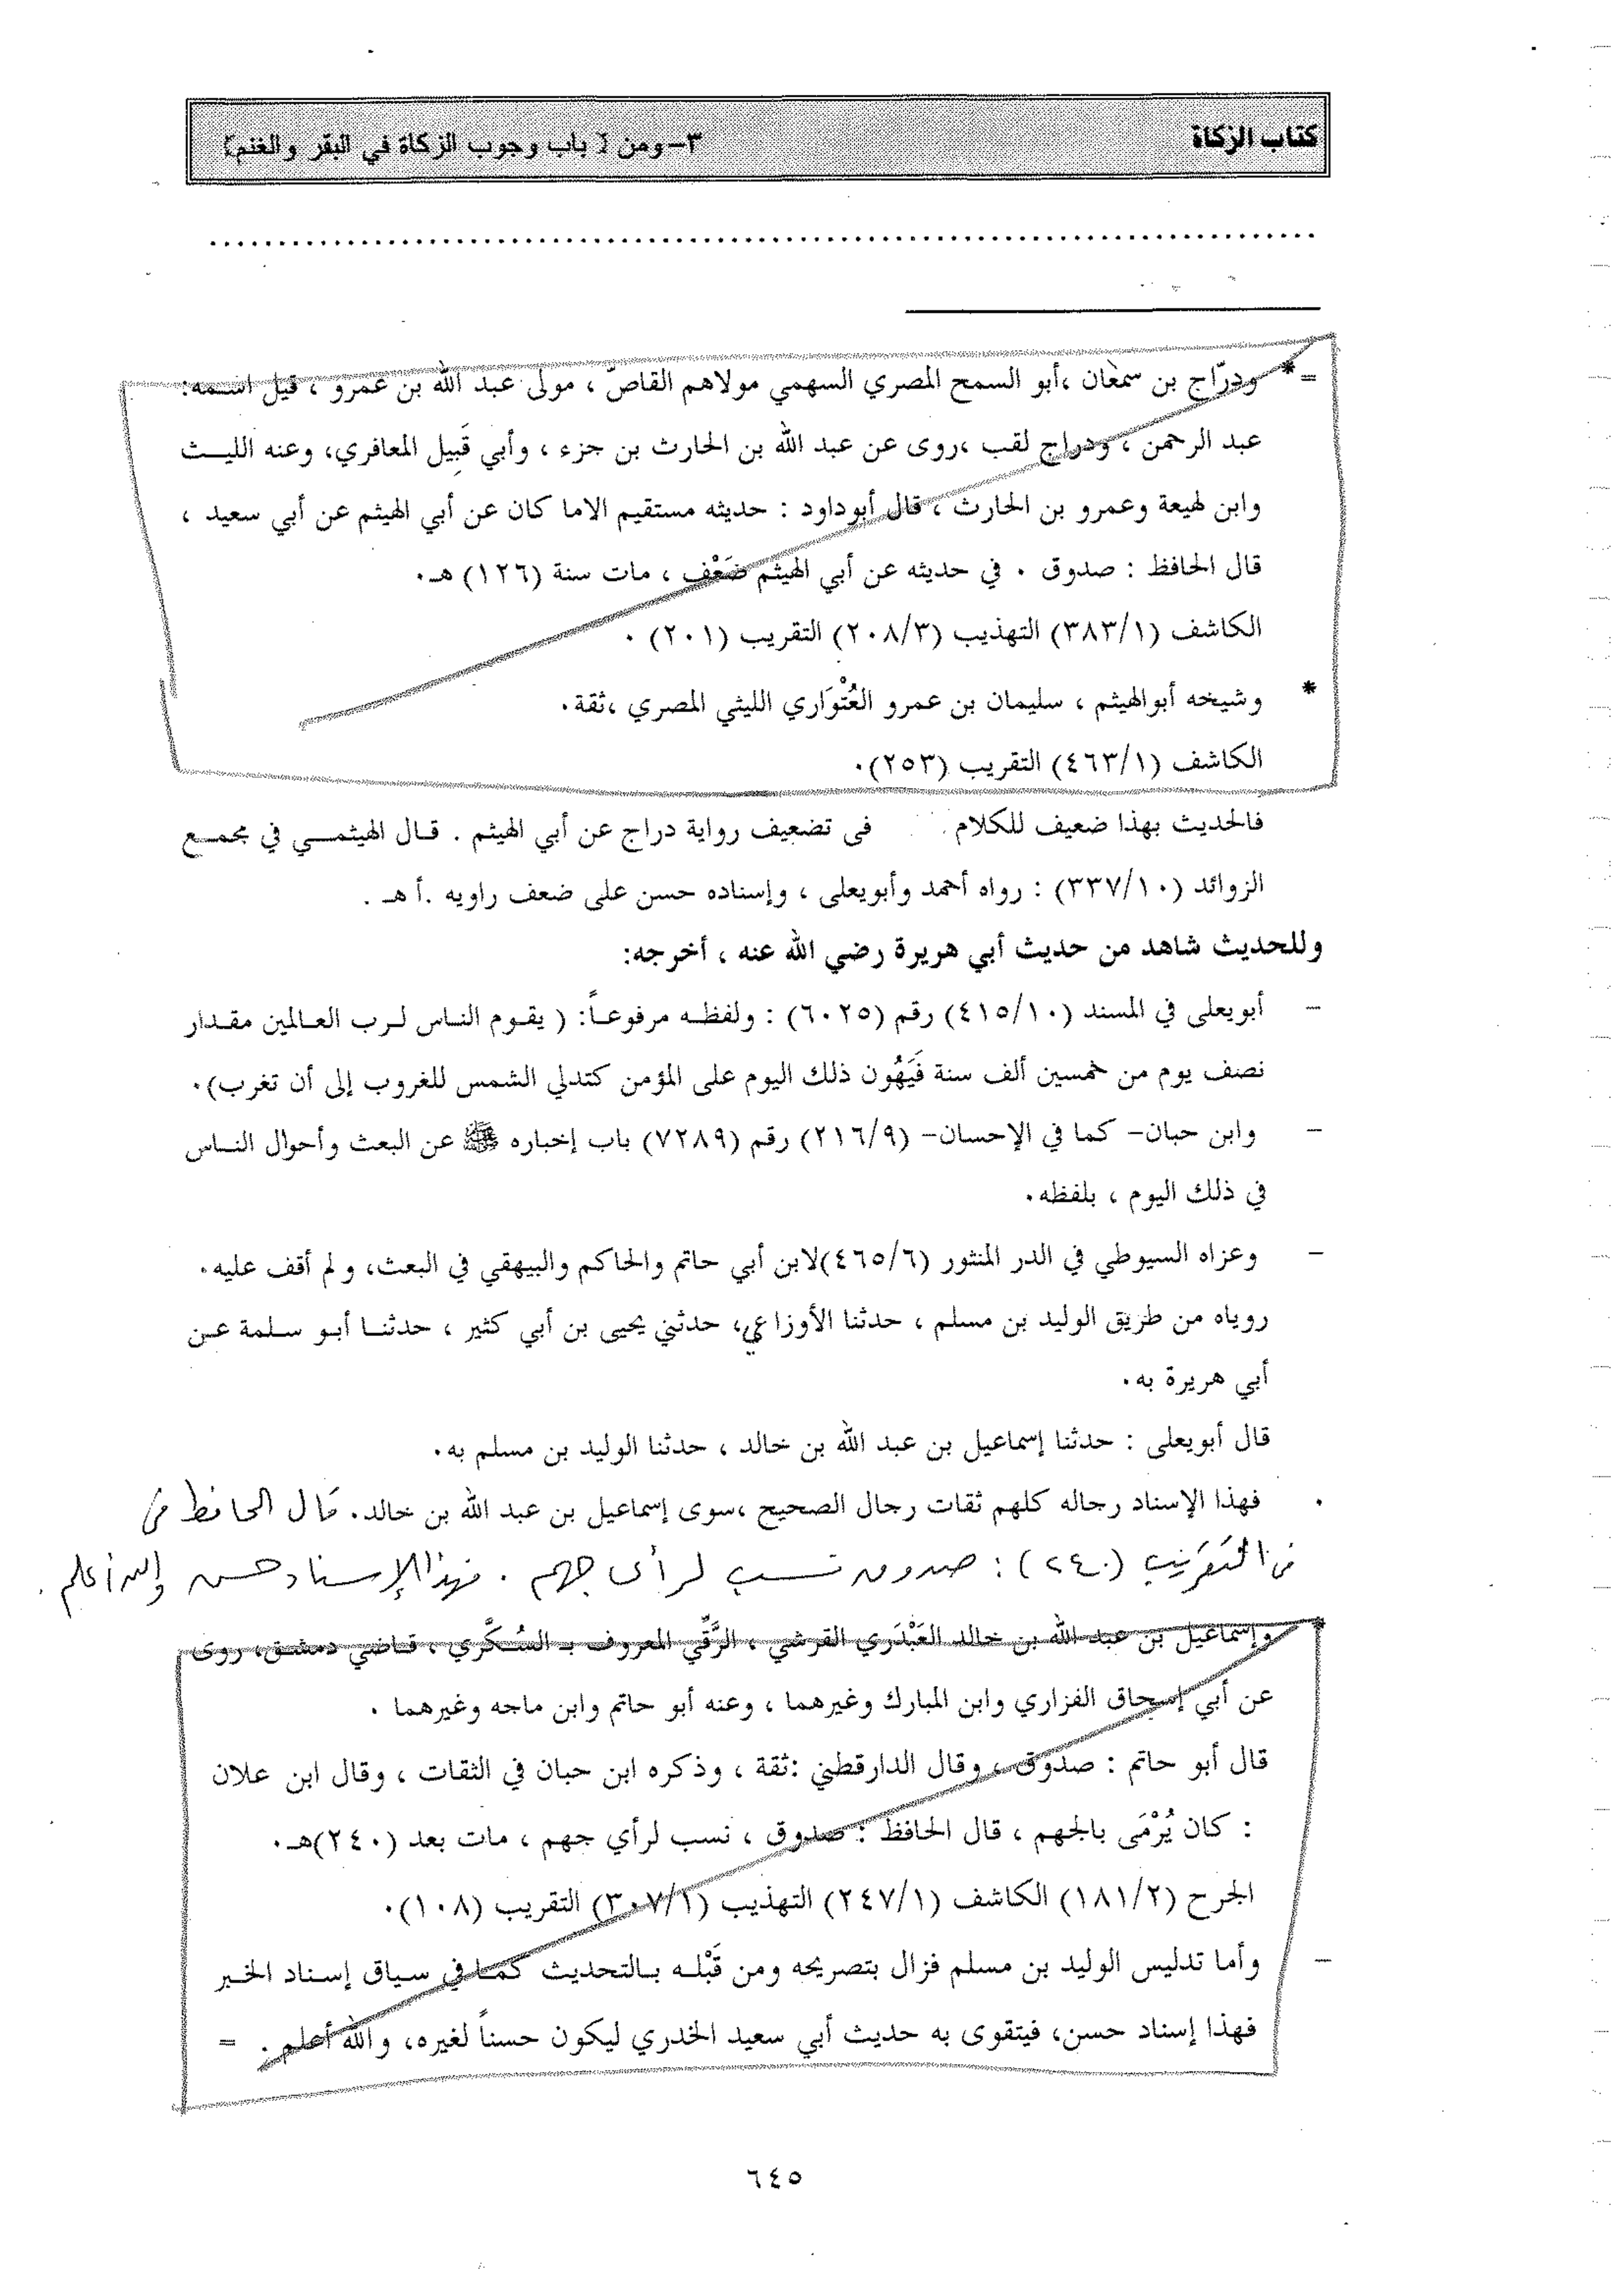 كتاب الزكاة
٣-ومن [ باب وجوب الزكاة في البقر والغنم]
=* ودرّاج بن سمعان ،أبو السمح المصري السهمي مولاهم القاصّ ، مولى عبد الله بن عمرو ، قيل اسمه:
عبد الرحمن ، ودراج لقب ،روى عن عبد الله بن الحارث بن جزء ، وأبي قَبِيل المعافري، وعنه الليث
وابن لهيعة وعمرو بن الحارث ، قال أبوداود : حديثه مستقيم الاما كان عن أبي الهيثم عن أبي سعيد ،
قال الحافظ : صدوق . في حديثه عن أبي الهيثم ضَعْف ، مات سنة (١٢٦) هـ.
الكاشف (٣٨٣/١) التهذيب (٢٠٨/٣) التقريب (٢٠١) .
* وشيخه أبوالهيثم ، سليمان بن عمرو العُتْوَاري الليثي المصري ،ثقة.
الكاشف (٤٦٣/١) التقريب (٢٥٣).
فالحديث بهذا ضعيف للكلام فى تضعيف رواية دراج عن أبي الهيثم . قال الهيثمي في مجمع
الزوائد (٣٣٧/١٠) : رواه أحمد وأبويعلى ، وإسناده حسن على ضعف راويه .أ هـ .
وللحديث شاهد من حديث أبي هريرة رضي الله عنه ، أخرجه:
- أبويعلى في المسند (٤١٥/١٠) رقم (٦٠٢٥) : ولفظه مرفوعاً: ( يقوم الناس لرب العالمين مقدار
نصف يوم من خمسين ألف سنة فَيَهُون ذلك اليوم على المؤمن كتدلي الشمس للغروب إلى أن تغرب).
- وابن حبان- كما في الإحسان- (٢١٦/٩) رقم (٧٢٨٩) باب إخباره ﷺ عن البعث وأحوال الناس
في ذلك اليوم ، بلفظه.
- وعزاه السيوطي في الدر المنثور (٤٦٥/٦)لابن أبي حاتم والحاكم والبيهقي في البعث، ولم أقف عليه.
روياه من طريق الوليد بن مسلم ، حدثنا الأوزاعي، حدثني يحيى بن أبي كثير ، حدثنا أبو سلمة عن
أبي هريرة به.
قال أبويعلى : حدثنا إسماعيل بن عبد الله بن خالد ، حدثنا الوليد بن مسلم به.
. فهذا الإسناد رجاله كلهم ثقات رجال الصحيح ،سوى إسماعيل بن عبد الله بن خالد. قال الحافظ في
في التقريب (٢٤٠) : صدوق نسب لرأى جهم . فهذا الإسناد حسن والله أعلم .
* وإسماعيل بن عبد الله بن خالد العَبْدَري القرشي ، الرَّقِّي المعروف بـ السُكَّري ، قاضي دمشق، روى
عن أبي إسحاق الفزاري وابن المبارك وغيرهما ، وعنه أبو حاتم وابن ماجه وغيرهما .
قال أبو حاتم : صدوق ، وقال الدارقطني :ثقة ، وذكره ابن حبان في الثقات ، وقال ابن علان
: كان يُرْمَى بالجهم ، قال الحافظ : صدوق ، نسب لرأي جهم ، مات بعد (٢٤٠)هـ.
الجرح (١٨١/٢) الكاشف (٢٤٧/١) التهذيب (٣٠٧/١) التقريب (١٠٨).
- وأما تدليس الوليد بن مسلم فزال بتصريحه ومن قَبْله بالتحديث كما في سياق إسناد الخبر
فهذا إسناد حسن، فيتقوى به حديث أبي سعيد الخدري ليكون حسناً لغيره، والله أعلم . =
٦٤٥